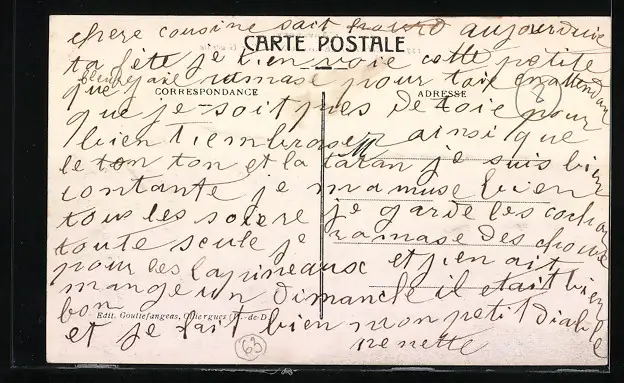 chere cousine sait aujourduie
CARTE POSTALE
ta fête je tien voie cette petite
bleu
que jaie ramase pour toie enattendan
CORRESPONDANCE
ADRESSE
que je soit pres de toie pour
bien tembrase ainsi que
le ton ton et la tatan je suis bien
contante je mamuse bien
tous les soiere je garde les cochon
toute seule je ramase des choue
pour les lapineaux et jen ait
mange un dimanche il etait bien
bon
Edit. Goutiefangeas, Olliergues (P.-de-D.
et je fait bien mon petit diable
nenette
63